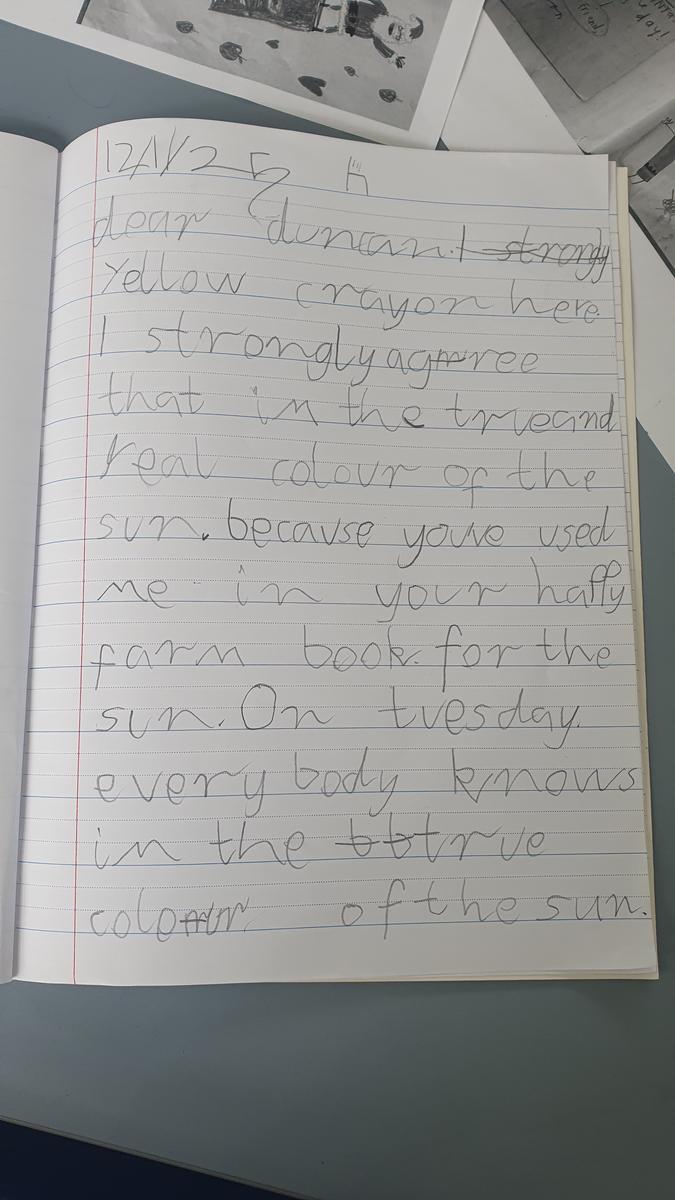 dear duncan. I strongly
Yellow crayon here.
I strongly agree
that in the trueand
real colour of the
sun. because youve used
me in your happy
farm book. for the
sun. On tuesday.
every body knows
in the true
colour of the sun.
day!
friend